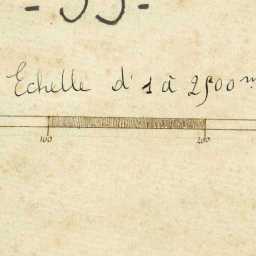 Echelle d' 1 à 2500 m
100 200